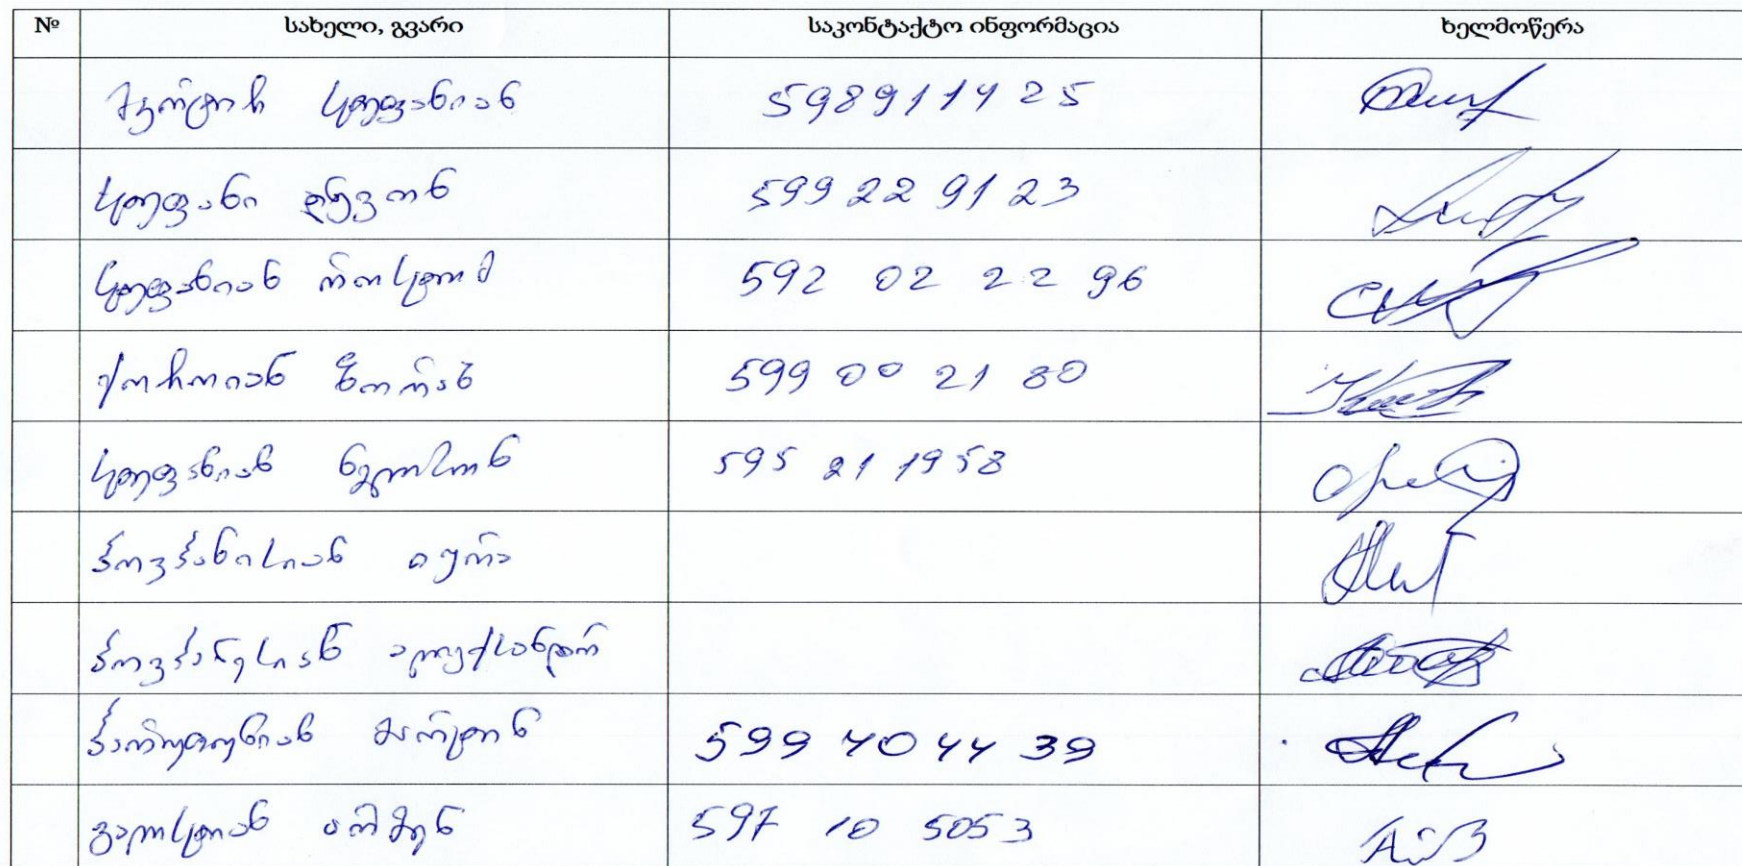 № სახელი, გვარი საკონტაქტო ინფორმაცია ხელმოწერა
მკრტიჩ სტეფანიან 598911425
სტეფანი 599 22 91 23
სტეფანიან როსტომ 592 02 22 96
ქოჩოიან ზორაბ 599 00 21 80
სტეფანიან ნელსონ 595 21 1958
ჰოვჰანისიან იურა
ჰოვჰანესიან ალექსანდრ
ჰარუთუნიან მარტინ 599 40 44 39
გალსტიან არმენ 597 10 5053